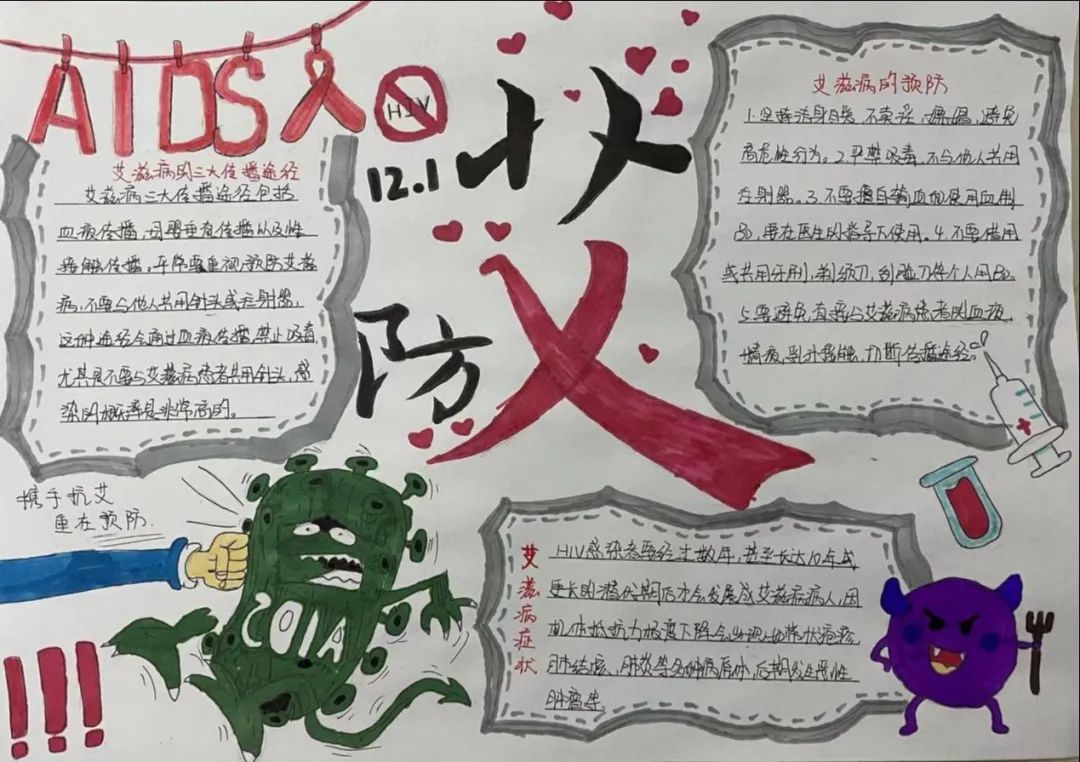 AIDS
HIV
12.1
防艾
艾滋病的三大传播途径
艾滋病三大传播途径包括
血液传播,母婴垂直传播以及性
接触传播。平常要重视预防艾滋
病,不要与他人共用针头或注射器,
这种途径会通过血液传播,禁止吸毒
尤其是不要与艾滋病患者共用针头,感
染的概率是非常高的。
艾滋病的预防
1.坚持洁身自爱,不卖淫、嫖娼,避免
高危性行为。2.严禁吸毒,不与他人共用
注射器。3.不要擅自输血和使用血制
品,要在医生的指导下使用。4.不要借用
或共用牙刷,剃须刀,刮脸刀等个人用品。
5.要避免直接与艾滋病患者的血液,
精液,乳汁接触,切断传播途径。
携手抗艾
重在预防.
AIDS
!!!
艾滋病症状
HIV感染者要经过数年,甚至长达10年或
更长的潜伏期后才会发展成艾滋病病人,因
机体抵抗力极度下降会出现如带状疱疹,
肺结核,肺炎等多种病原体,后期发生恶性
肿瘤